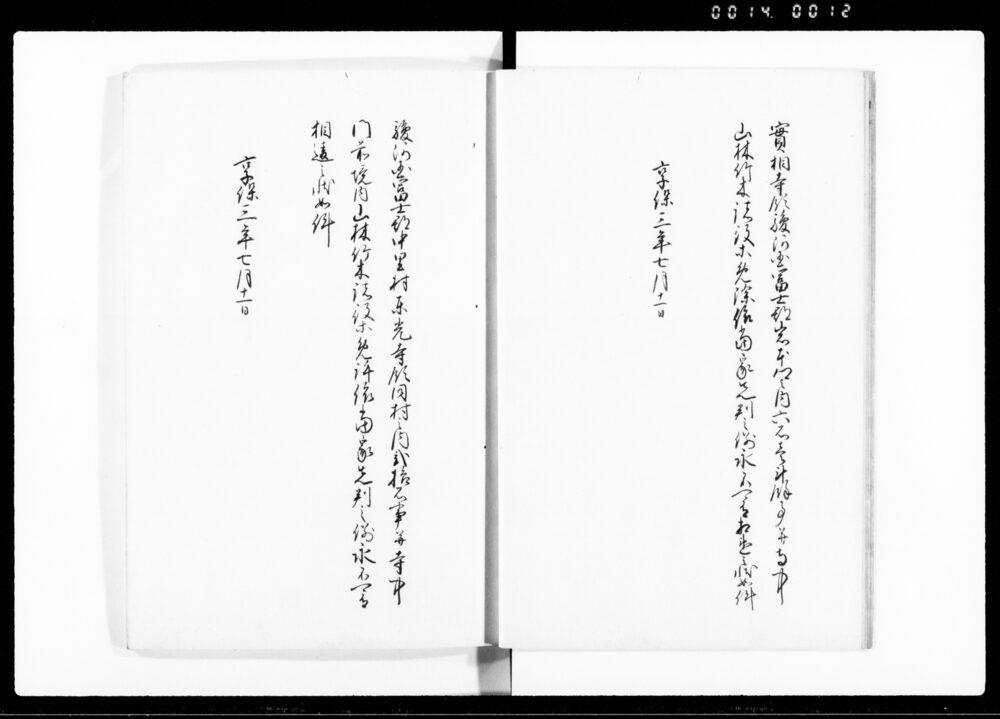 0014 0012
實相寺領駿河国富士郡岩本郷之内六石壱斗餘事并寺中
山林竹木諸役等免除依當家先判之例永不可有相違之状如件
享保三年七月十一日
駿河国富士郡中里村東光寺領同村之内弐拾石事并寺中
門前境内山林竹木諸役等免許依當家先判之例永不可有
相違之状如件
享保三年七月十一日